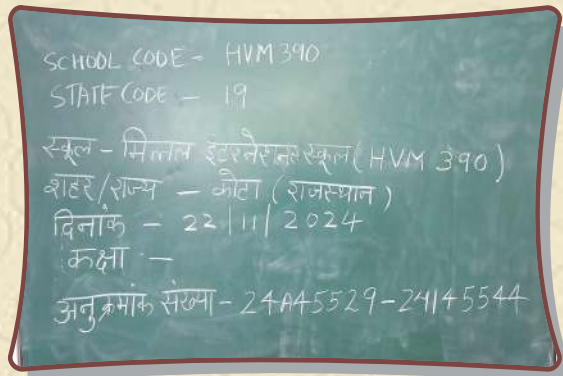 SCHOOL CODE - HVM 390
STATE CODE - 19
स्कूल - मित्तल इंटरनेशनल स्कूल (HVM 390)
शहर/राज्य - कोटा (राजस्थान)
दिनांक - 22/11/2024
कक्षा -
अनुक्रमांक संख्या - 24A45529-24145544